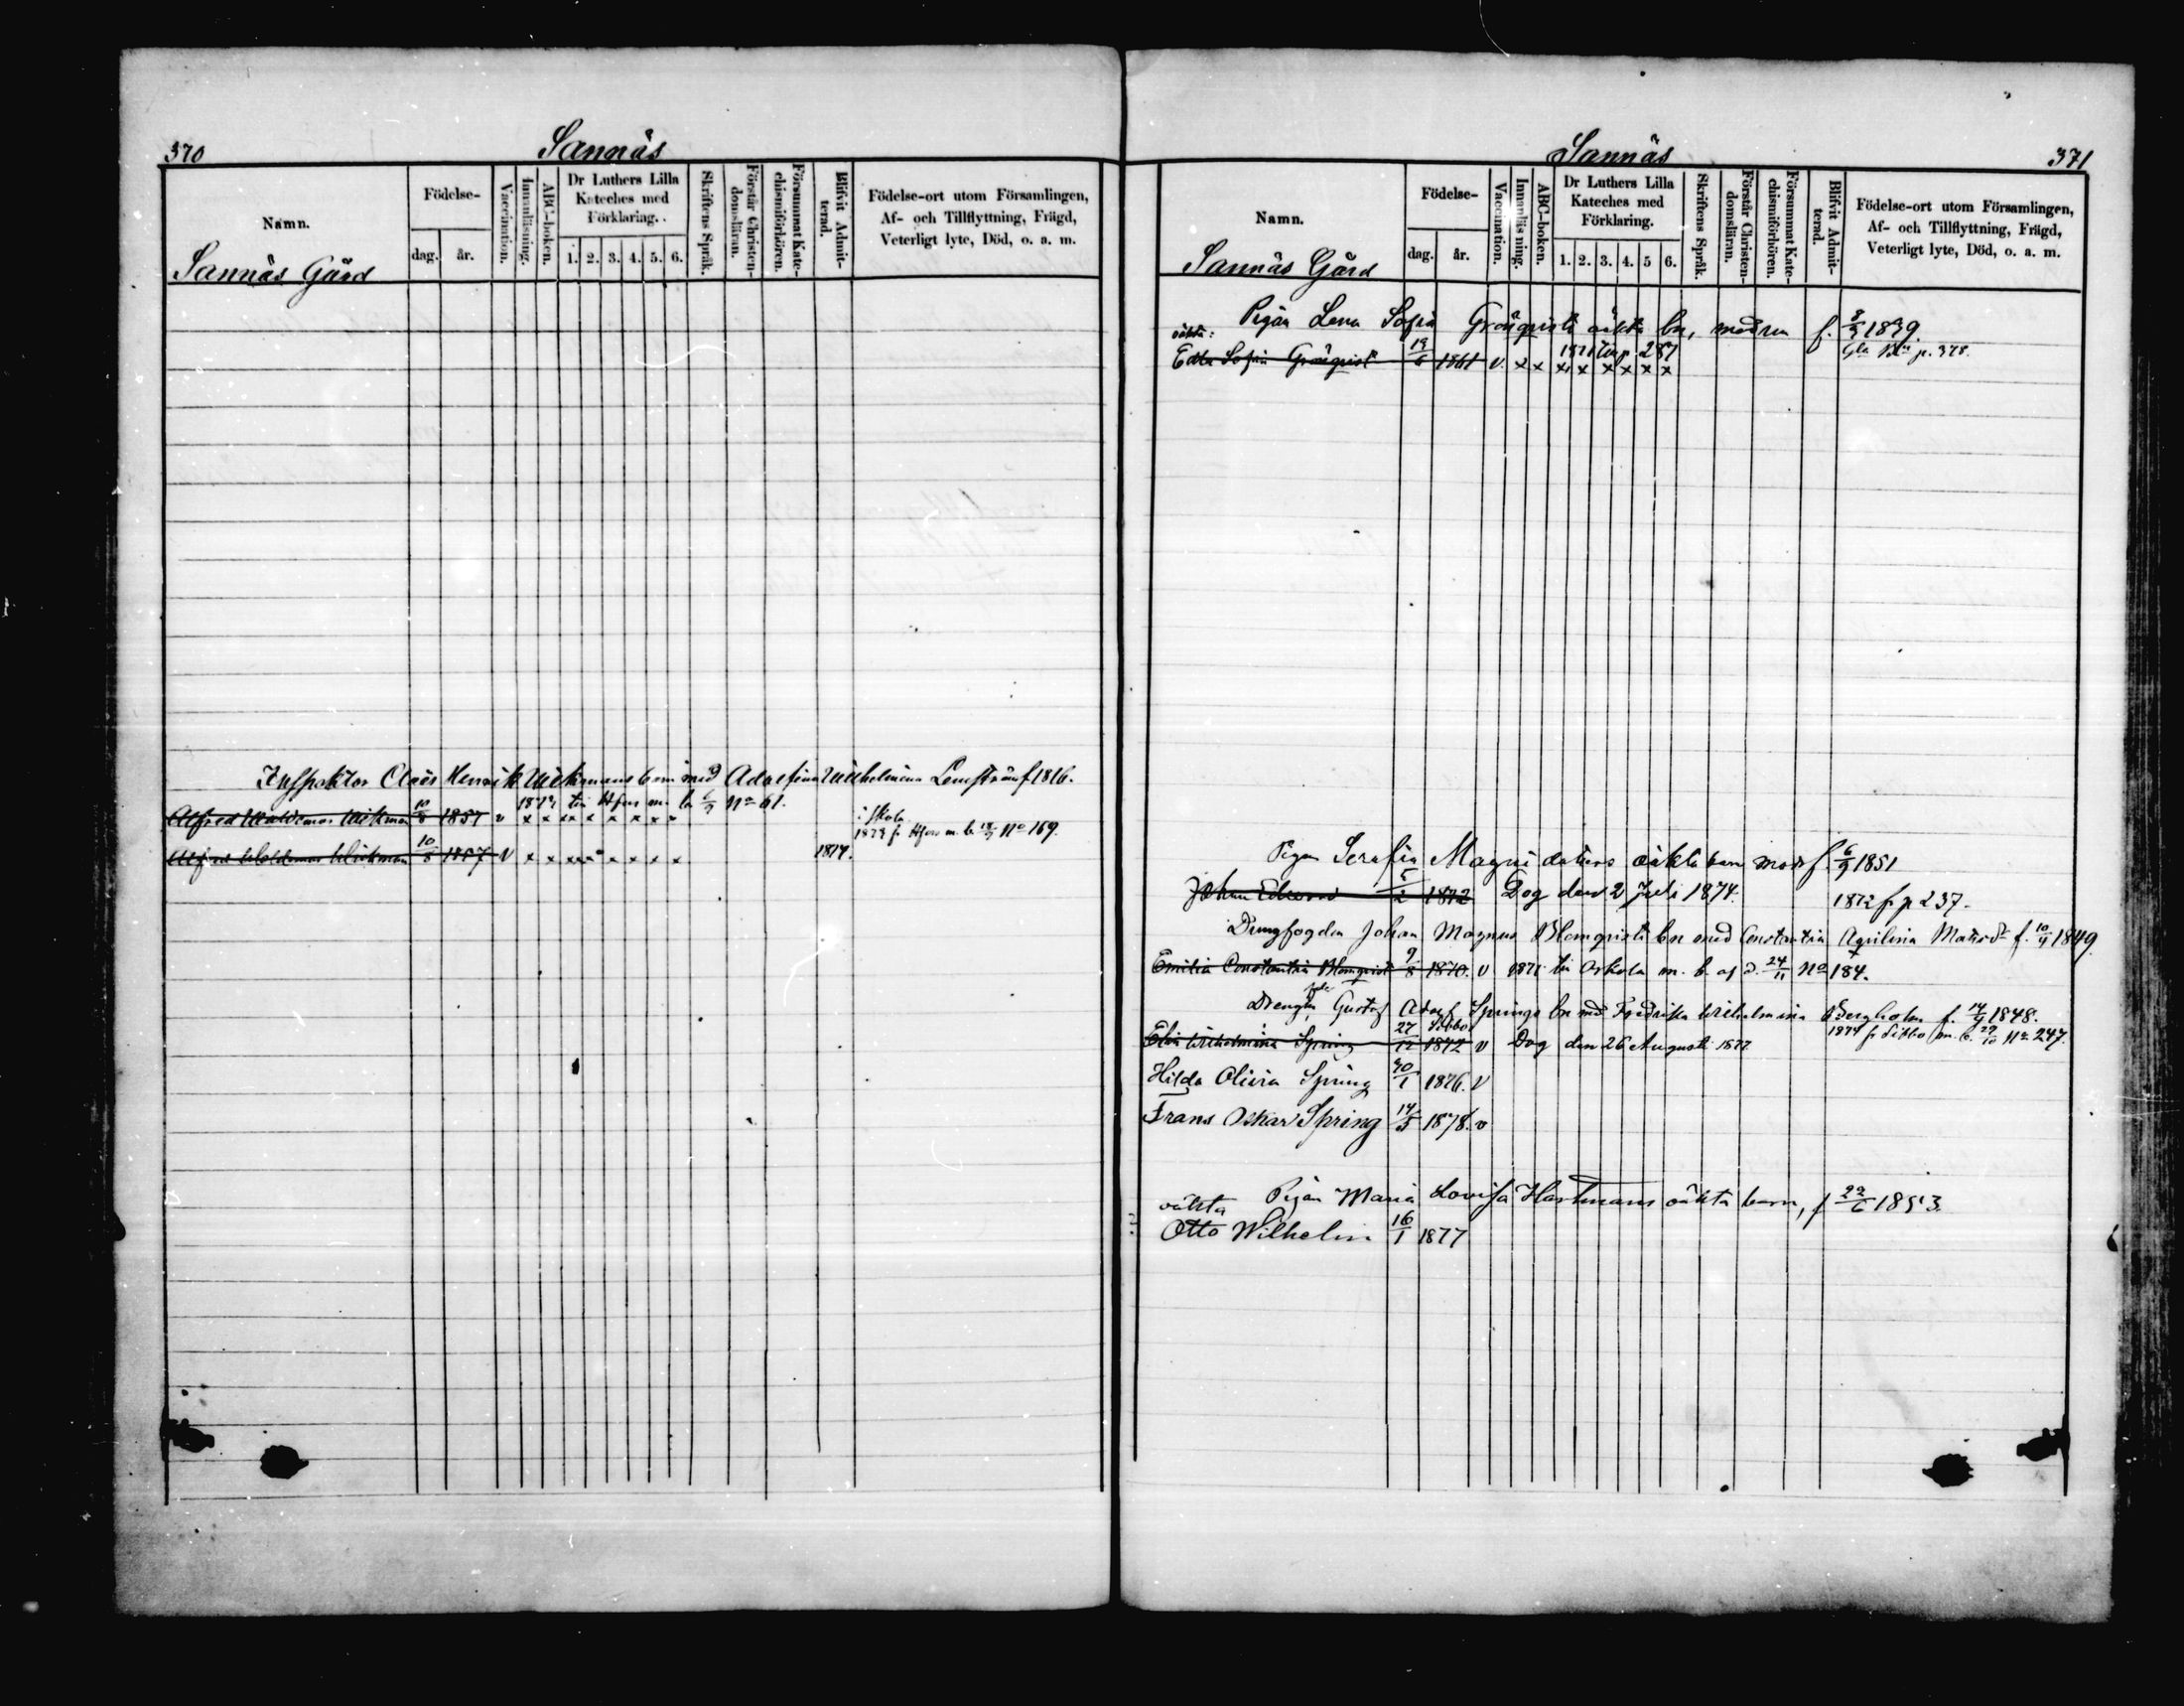 370
Sannäs
Namn.
Födelse-
dag.
år.
Vaccination.
Innanläsning.
ABC-boken.
Dr Luthers Lilla
Kateches med
Förklaring.
1. 2. 3. 4. 5. 6.
Skriftens Språk.
Förstår Christen-
domsläran.
Försummat Kate-
chismiförhören.
Blifvit Admit-
terad.
Födelse-ort utom Församlingen,
Af- och Tillflyttning, Frägd,
Veterligt lyte, Död, o. a. m.
Sannäs Gård
Inspektor Claës Henrik Wikmans barn med Adolfina Wilhelmina f 1816.
1871 till Hfors m. b. 6/9 No 61.
Alfred Waldemar Wikman 10/8 1857 v x x x x x x x x i skola
1873 fr Hfors m. b. No 169.
Alfred Waldemar Wikman 10/8 1857 v x x x x x x x x 1874.
Sannäs
371
Namn.
Födelse-
dag.
år.
Vaccination.
Innanläsning.
ABC-boken.
Dr Luthers Lilla
Kateches med
Förklaring.
1. 2. 3. 4. 5 6.
Skriftens Språk.
Förstår Christen-
domsläran.
Försummat Kate-
chismiförhören.
Blifvit Admit-
terad.
Födelse-ort utom Församlingen,
Af- och Tillflyttning, Frägd,
Veterligt lyte, Död, o. a. m.
Sannäs Gård
Pigan Lena Sofia Grönqvists oäkta bn, modren f. 1839.
oäkta: 1871 till p. 287 Gla p. 378.
Edla Sofia Grönqvist 19/6 1861 v. x x x x x x x x
Pigan Serafia Magnidotters oäkta barn modr f. 6/9 1851
Johan Edvard 5/2 1872 Dog den 2 Juli 1874. 1872 fr p 237.
Drengfogden Johan Magnus Blomqvists bn med Constantia Aqvilina Matsdr f. 10/4 1849
Emilia Constantia Blomqvist 9/8 1870. v 1871 till Askola m. b. af d. 24/11 No 184.
Drengen Gustaf Adolf Springs bn med Fredrika Wilhelmina Bergholm f. 14/4 1848.
Sibbo 1874 fr Sibbo m. b. 29/10 No 247.
Wilhelmina Spring 27/12 1872 v Dog den 26 Augusti 1877
Hilda Olivia Spring 30/1 1876. v
Frans Oskar Spring 14/5 1878. v
Pigan Maria Lovisa Hartmans oäkta barn, f 22/6 1853.
oäkta
Otto Wilhelm 16/1 1877